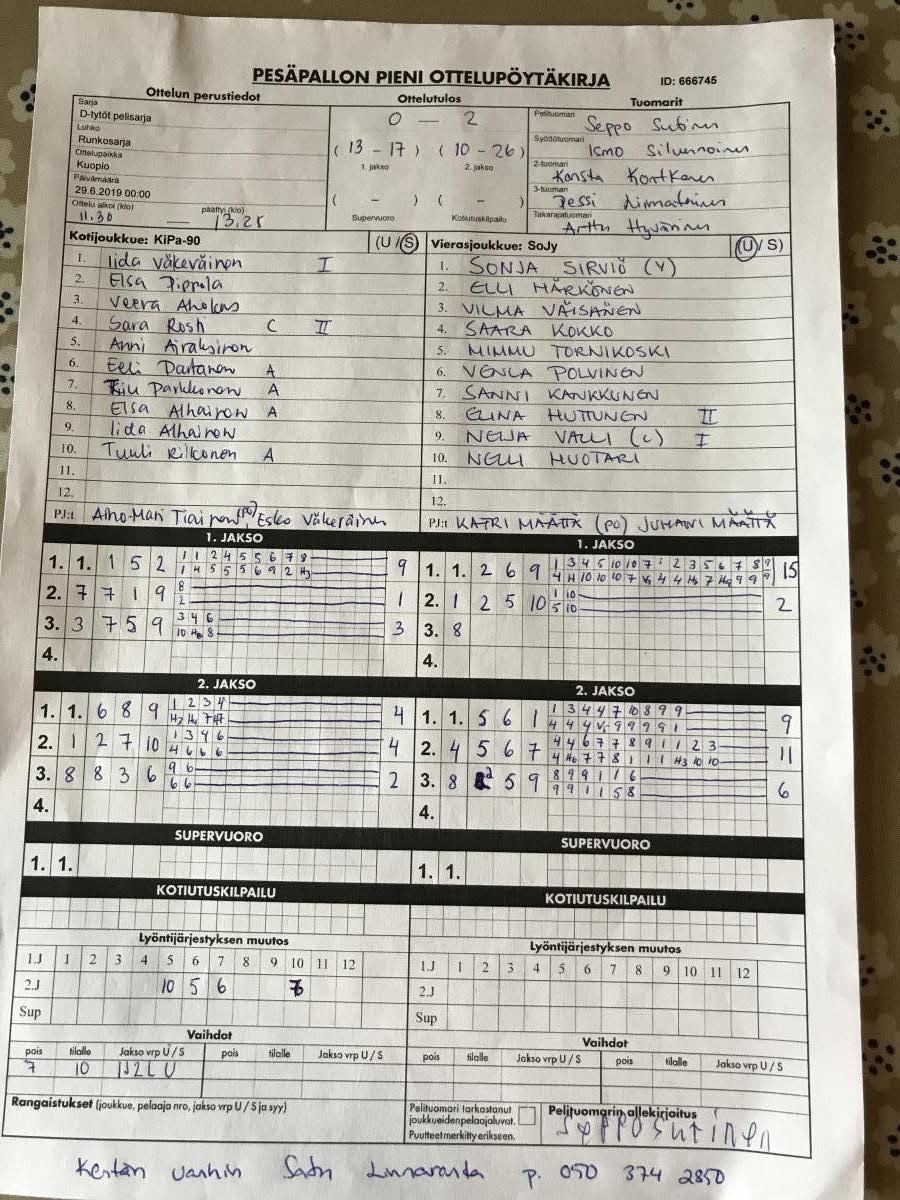 PESÄPALLON PIENI OTTELUPÖYTÄKIRJA ID: 666745
Ottelun perustiedot Ottelutulos Tuomarit
Sarja
D-tytöt pelisarja
Lohko
Runkosarja
Ottelupaikka
Kuopio
Päivämäärä
29.6.2019 00:00
Ottelu alkoi (klo) päättyi (klo)
11.30 — 13.25
0 — 2
( 13 - 17 ) ( 10 - 26 )
1. jakso 2. jakso
( - ) ( - )
Supervuoro Kotiutuskilpailu
Pelituomari
Seppo Sutinen
Syöttötuomari
Ismo Silvennoinen
2-tuomari
Konsta Kortkanen
3-tuomari
Jessi
Takarajatuomari
Arttu Hyvärinen
Kotijoukkue: KiPa-90 (U / S)
1. Iida Väkeväinen I
2. Elsa Pippola
3. Veera Aholas
4. Sara Rosti C II
5. Anni Airaksinen
6. Eeli Dartanen A
7. Parkkonen A
8. Elsa Alhainow A
9. Iida Alhainow
10. Tuuli Rilkonen A
11.
12.
PJ:t Aino-Mari Tiainen (po) Esko Väkeväinen
Vierasjoukkue: SoJy (U / S)
1. SONJA SIRVIÖ (V)
2. ELLI HÄRKÖNEN
3. VILMA VÄISÄNEN
4. SAARA KOKKO
5. MIMMU TORNIKOSKI
6. VENLA POLVINEN
7. SANNI KANKKUNEN
8. ELINA HUTTUNEN II
9. NELJA VALLI (C) I
10. NELLI HUOTARI
11.
12.
PJ:t KATRI MÄÄTTÄ (PO) JUHANI MÄÄTTÄ
1. JAKSO
1. 1. 1 5 2 1 1 2 4 5 5 6 7 8 9
1 4 5 5 5 6 9 2 H3
2. 7 7 1 9 8 1
2
3. 3 7 5 9 3 4 6 3
10 H8 8
4.
1. JAKSO
1. 1. 2 6 9 1 3 4 5 10 10 7 1 2 3 5 6 7 8 9 15
4 H 10 10 10 7 V3 4 4 H3 7 H9 9 9 9
2. 1 2 5 10 1 10 2
5 10
3. 8
4.
2. JAKSO
1. 1. 6 8 9 1 2 3 4 4
H2 H4 7 H7
2. 1 2 7 10 1 3 4 6 4
4 6 6 6
3. 8 8 3 6 9 6 2
6 6
4.
2. JAKSO
1. 1. 5 6 1 1 3 4 4 7 10 8 9 9 9
4 4 4 V- 9 9 9 9 1
2. 4 5 6 7 4 4 6 7 7 8 9 1 1 2 3 11
4 H6 7 7 8 1 1 1 H3 10 10
3. 8 2 5 9 8 9 9 1 1 6 6
9 9 1 1 5 8
4.
SUPERVUORO SUPERVUORO
1. 1. 1. 1.
KOTIUTUSKILPAILU KOTIUTUSKILPAILU
Lyöntijärjestyksen muutos Lyöntijärjestyksen muutos
1.J 1 2 3 4 5 6 7 8 9 10 11 12 1.J 1 2 3 4 5 6 7 8 9 10 11 12
2.J 10 5 6 7 2.J
Sup Sup
Vaihdot Vaihdot
pois tilalle Jakso vrp U / S pois tilalle Jakso vrp U / S pois tilalle Jakso vrp U / S pois tilalle Jakso vrp U / S
7 10
Rangaistukset (joukkue, pelaaja nro, jakso vrp U / S ja syy)
Pelituomari tarkastanut
joukkueidenpelaajaluvat.
Puutteetmerkitty erikseen.
Pelituomarin allekirjoitus
SEPPO SUTINEN
Kentän vanhin Satu Linnaranta p. 050 374 2850